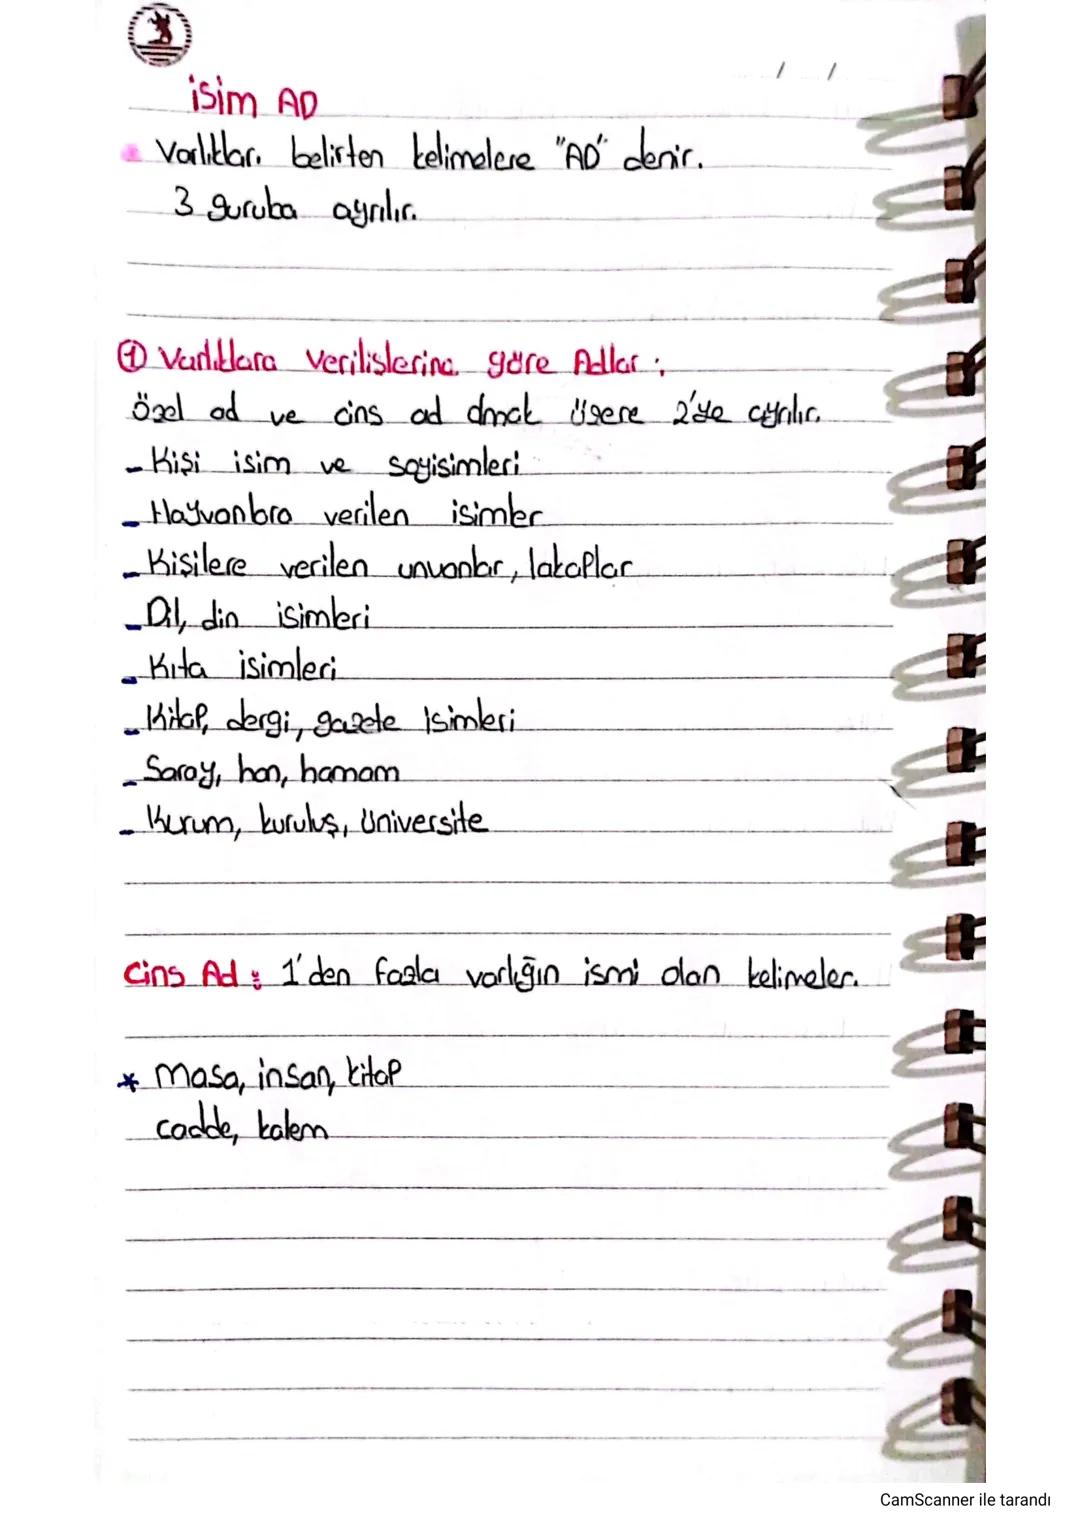 isim AD
Varlıkları belirten kelimelere "AD" denir.
3 guruba ayrılır.
① Varlıklara Verilişlerine göre Adlar :
Özel ad ve cins ad olmak üzere 2'ye ayrılır.
- Kişi isim ve soyisimleri
- Hayvanlara verilen isimler
- Kişilere verilen unvanlar, lakaplar
- Dil, din isimleri
- Kıta isimleri
- Kitap, dergi, gazete isimleri
- Saray, han, hamam
- Kurum, kuruluş, üniversite
Cins Ad : 1'den fazla varlığın ismi olan kelimeler.
* Masa, insan, kitap
cadde, kalem
CamScanner ile tarandı